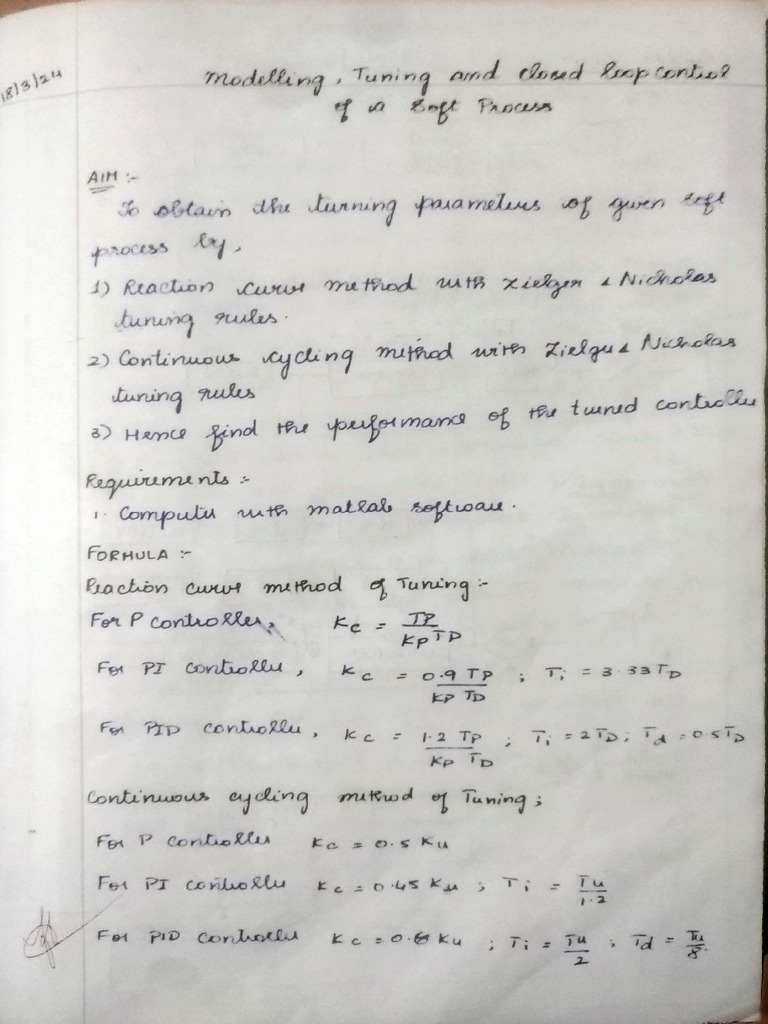 18/3/24
Modelling, Tuning and closed loop control
of a Soft Process
AIM :-
To obtain the turning parameters of given soft
process by,
1) Reaction curve method with Zielger & Nicholas
tuning rules.
2) Continuous cycling method with Zielger & Nicholas
tuning rules
3) Hence find the performance of the tuned controller
Requirements :-
1. Computer with matlab software.
FORMULA :-
Reaction curve method of Tuning :-
For P controller, Kc = TP / KP TD
For PI controller, Kc = 0.9 TP / KP TD ; Ti = 3.33 TD
For PID controller, Kc = 1.2 TP / KP TD ; Ti = 2 TD ; Td = 0.5 TD
Continuous cycling method of Tuning ;
For P controller Kc = 0.5 Ku
For PI controller Kc = 0.45 Ku ; Ti = Tu / 1.2
For PID controller Kc = 0.6 Ku ; Ti = Tu / 2 ; Td = Tu / 8.